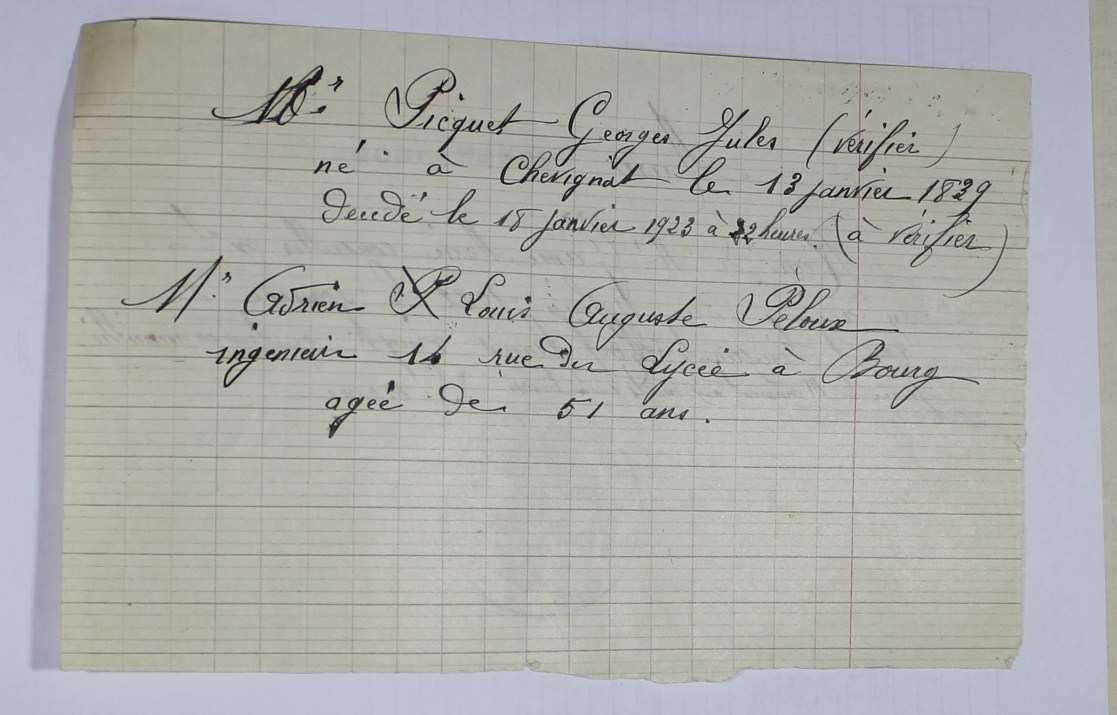 Mr Picquet Georges Jules (vérifier)
né à Chevignat le 13 janvier 1839
décédé le 18 janvier 1923 à 22 heures (à vérifier)
Mr Adrien Louis Auguste Péloux
ingenieur 14 rue du Lycée à Bourg
agée de 51 ans.